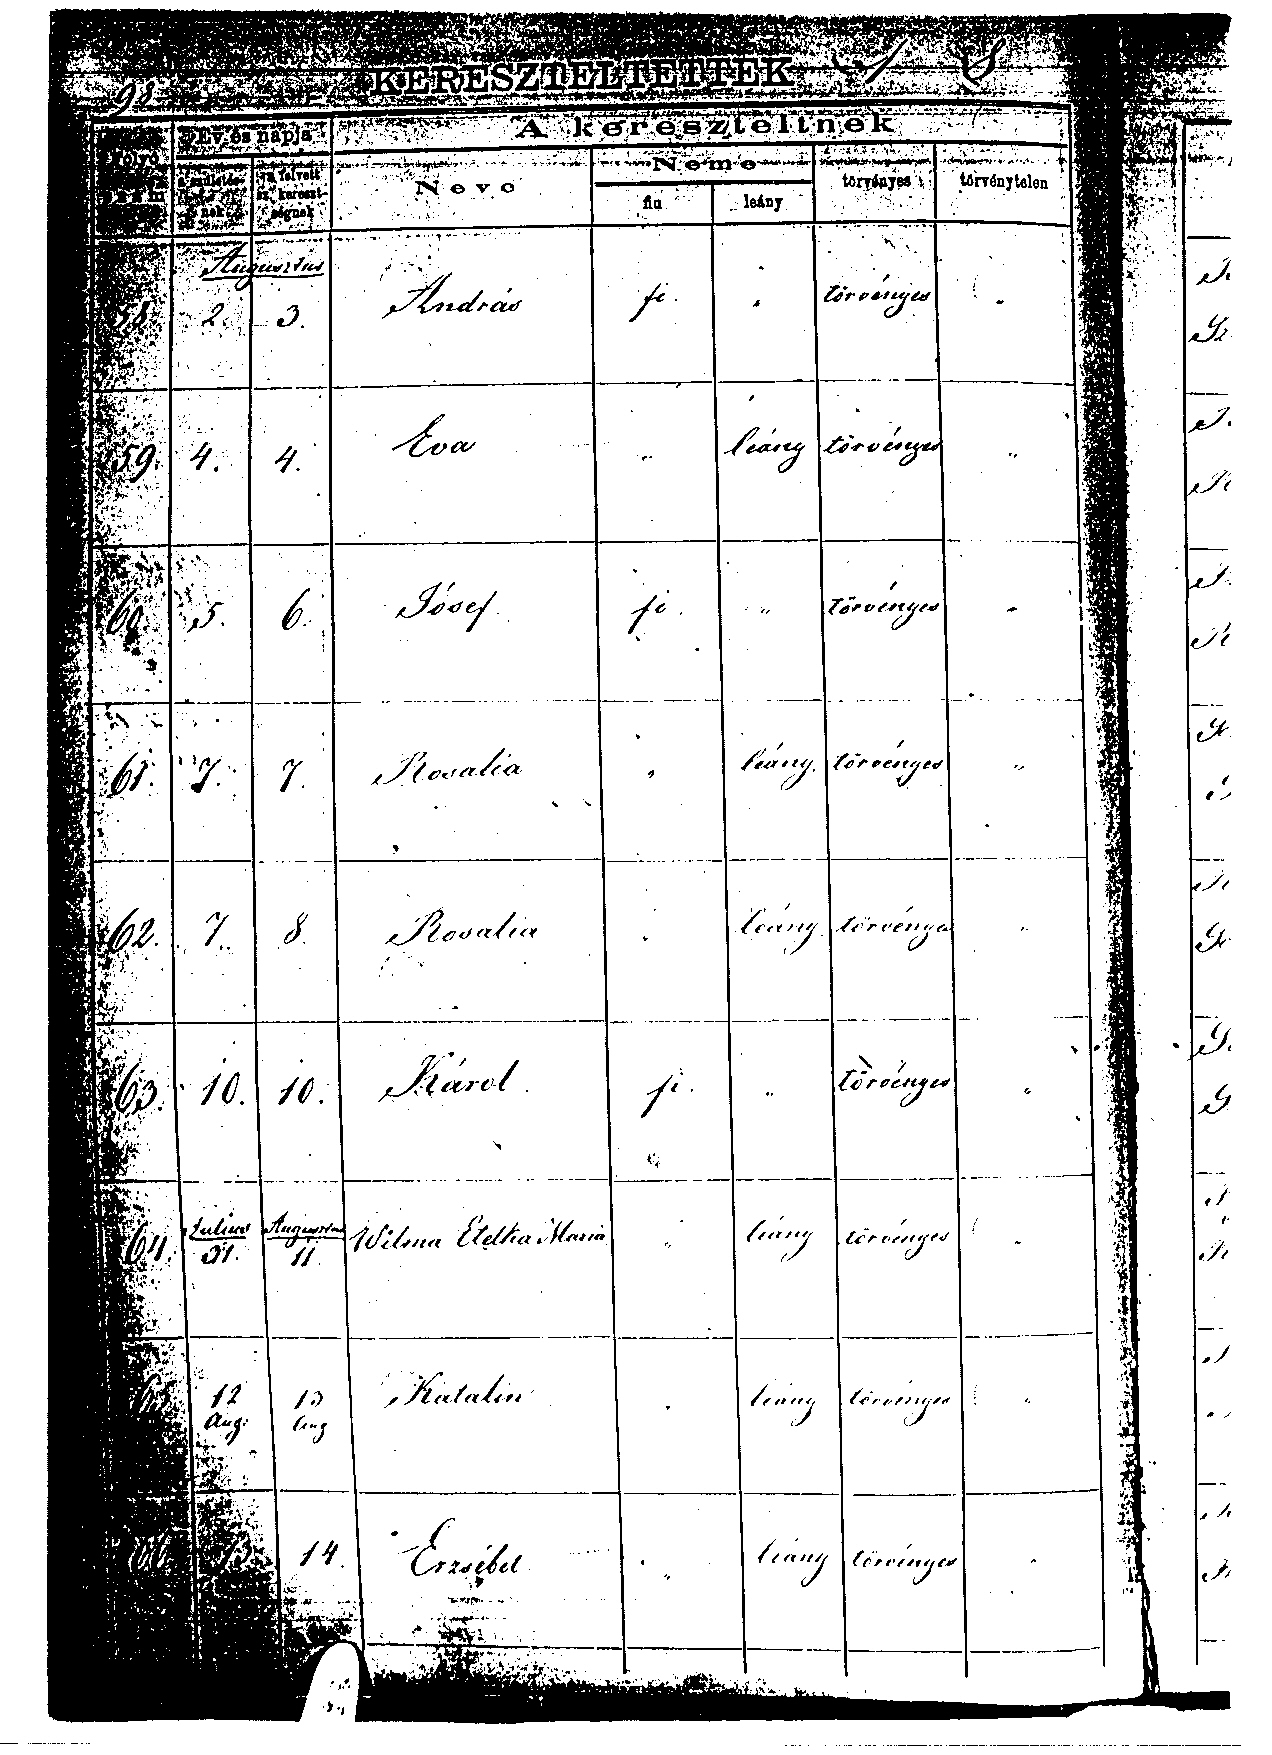 98
KERESZTELTETTEK
Folyó szám
Év és napja
A kereszteltnek
a születésnek
a felvett sz. keresztségnek
Neve
Neme
fiu
leány
törvényes
törvénytelen
Augusztus
58. 2. 3. András fi. " törvényes "
59. 4. 4. Éva " leány törvényes "
60. 5. 6. Jósef fi. " törvényes "
61. 7. 7. Rosalia " leány törvényes "
62. 7. 8. Rosalia " leány törvényes "
63. 10. 10. Károl fi. " törvényes "
64. Julius 31. Augusztus 11. Wilma Etelka Maria " leány törvényes "
65 12 Aug: 13 Aug Katalin " leány törvényes "
66 13. 14. Erzsébet " leány törvényes "